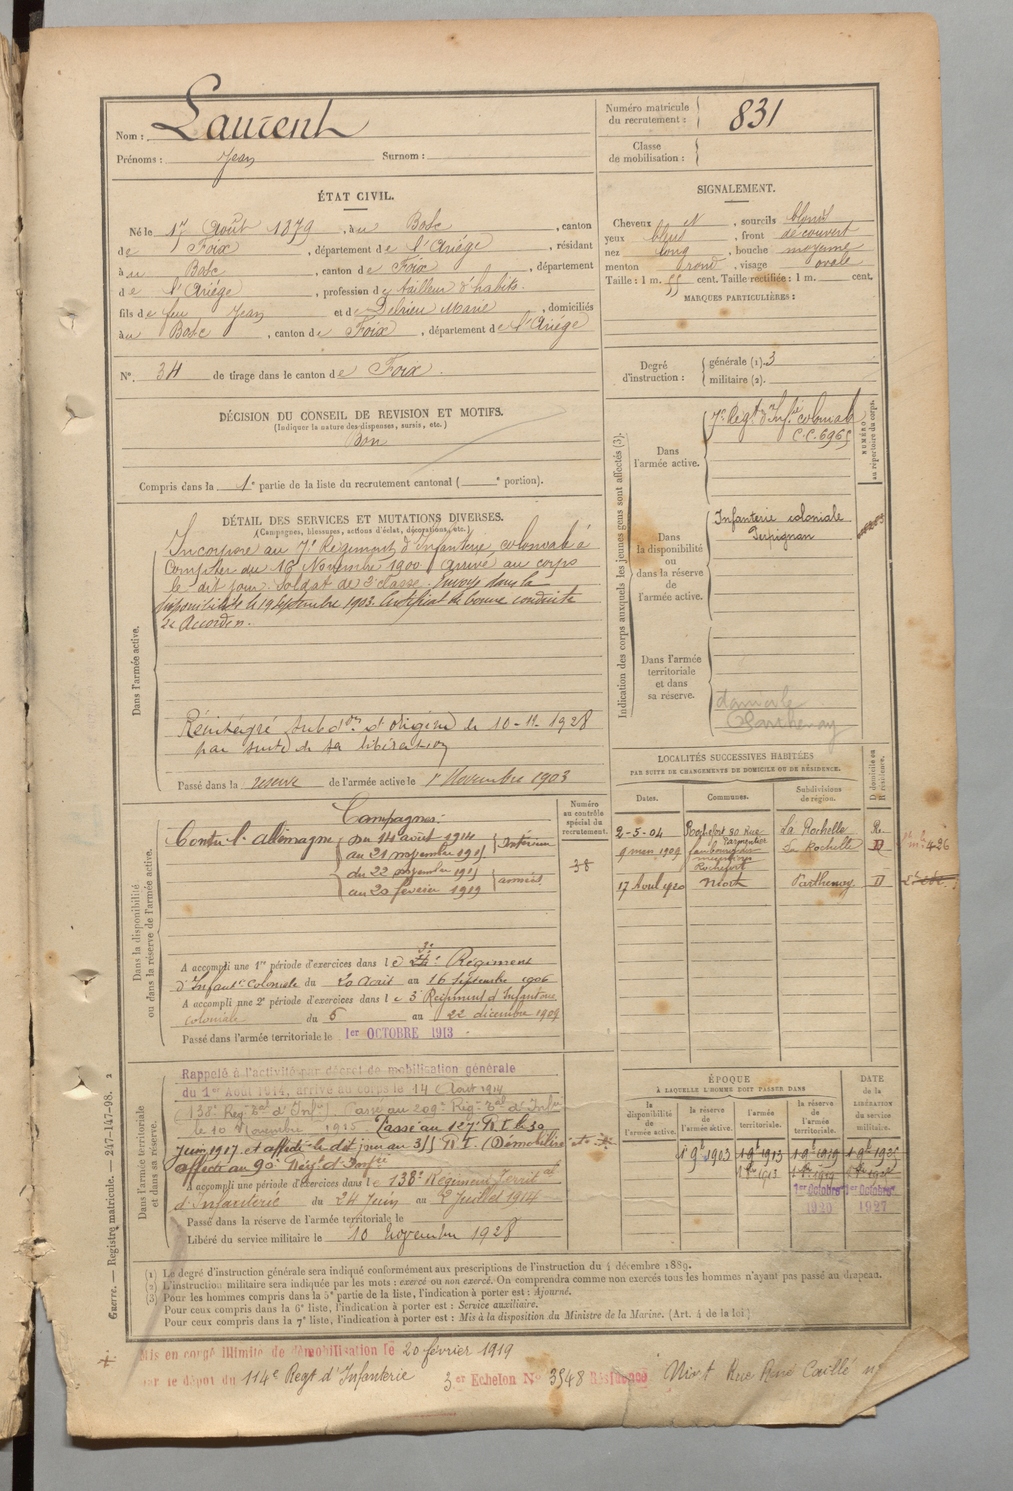 Nom : Laurent
Prénoms : Jean Surnom :
Numéro matricule du recrutement : 831
Classe de mobilisation :
ÉTAT CIVIL.
Né le 17 Août 1879, à u Bosc, canton
de Foix, département de l'Ariége, résidant
à u Bosc, canton de Foix, département
de l'Ariége, profession de tailleur d'habits.
fils de feu Jean et de Delrieu Marie, domiciliés
à u Bosc, canton de Foix, département de l'Ariége
N°. 34 de tirage dans le canton de Foix.
SIGNALEMENT.
Cheveux N, sourcils blond
yeux bleus, front découvert
nez long, bouche moyenne
menton rond, visage ovale
Taille : 1 m. 55 cent. Taille rectifiée : 1 m. cent.
MARQUES PARTICULIÈRES :
Degré d'instruction : générale (1). 3
militaire (2).
DÉCISION DU CONSEIL DE REVISION ET MOTIFS.
(Indiquer la nature des dispenses, sursis, etc.)
Bon
Compris dans la 1e partie de la liste du recrutement cantonal ( e portion).
DÉTAIL DES SERVICES ET MUTATIONS DIVERSES.
(Campagnes, blessures, actions d'éclat, décorations, etc.)
Dans l'armée active.
Incorporé au 7e Régiment d'Infanterie coloniale à
Compter du 16 Novembre 1900 arrivé au corps
le dit jour. Soldat de 2e Classe. Envoyé dans la
disponibilité le 19 Septembre 1903. Certificat de bonne conduite
accordé.
Réintégré subdon d'origine le 10-11-1928
par suite de sa libération
Passé dans la reserve de l'armée active le 1er Novembre 1903
Indication des corps auxquels les jeunes gens sont affectés (3).
NUMÉRO au répertoire du corps.
Dans l'armée active.
7e Régt d'Infie coloniale
C.C. 6965
Dans la disponibilité ou dans la réserve de l'armée active.
Infanterie coloniale
Perpignan
Dans l'armée territoriale et dans sa réserve.
domicile
Parthenay
Dans la disponibilité ou dans la réserve de l'armée active.
Campagnes.
Contre l'Allemagne du 14 août 1914
au 21 novembre 1915 Intérieur
du 22 novembre 1915
au 20 février 1919 armées
Numéro au contrôle spécial du recrutement.
38
A accompli une 1re période d'exercices dans le Régiment
d'Infanie Coloniale du 20 Août au 16 Septembre 1906
A accompli une 2e période d'exercices dans le 3e Régiment d'Infanterie
coloniale du 6 au 22 décembre 1909
Passé dans l'armée territoriale le 1er OCTOBRE 1913
LOCALITÉS SUCCESSIVES HABITÉES
PAR SUITE DE CHANGEMENTS DE DOMICILE OU DE RÉSIDENCE.
Dates. Communes. Subdivisions de région. D. domicile ou R. résidence.
2-5-04 Rochefort 30 Rue La Rochelle Re.
9 mars 1909 faubourg Rochefort La Rochelle D
17 Avril 1920 Niort Parthenay D
Dans l'armée territoriale et dans sa réserve.
Rappelé à l'activité par décret de mobilisation générale
du 1er Août 1914, arrivé au corps le 14 Août 1914
(138e Régt Tal d'Infie). Passé au 209e Régt Tal d'Infie
le 10 Novembre 1915. Passé au 127e R.T. le 30
Juin 1917 et affecté le dit jour au 355 R.I. (Démobilisé
affecté au 90e Régt d'Infie
A accompli une période d'exercices dans le 138e Régiment Territal
d'Infanterie du 24 Juin au 2 Juillet 1914
Passé dans la réserve de l'armée territoriale le
Libéré du service militaire le 10 novembre 1928
ÉPOQUE
À LAQUELLE L'HOMME DOIT PASSER DANS
DATE de la LIBÉRATION du service militaire.
la disponibilité de l'armée active. la réserve de l'armée active. l'armée territoriale. la réserve de l'armée territoriale.
1 9e 1903 1 9e 1913 1 9e 1919 1 9e 1925
1er Octobre 1920 1er Octobre 1927
(1) Le degré d'instruction générale sera indiqué conformément aux prescriptions de l'instruction du 4 décembre 1889.
(2) L'instruction militaire sera indiquée par les mots : exercé ou non exercé. On comprendra comme non exercés tous les hommes n'ayant pas passé au drapeau.
(3) Pour les hommes compris dans la 5e partie de la liste, l'indication à porter est : Ajourné.
Pour ceux compris dans la 6e liste, l'indication à porter est : Service auxiliaire.
Pour ceux compris dans la 7e liste, l'indication à porter est : Mis à la disposition du Ministre de la Marine. (Art. 4 de la loi)
Guerre. — Registre matricule. — 247-147-98. 2
Mis en congé illimité de démobilisation le 20 février 1919
par le dépôt du 114e Régt d'Infanterie 3er Echelon N° 3548 Résidence Niort Rue René Caillé n°